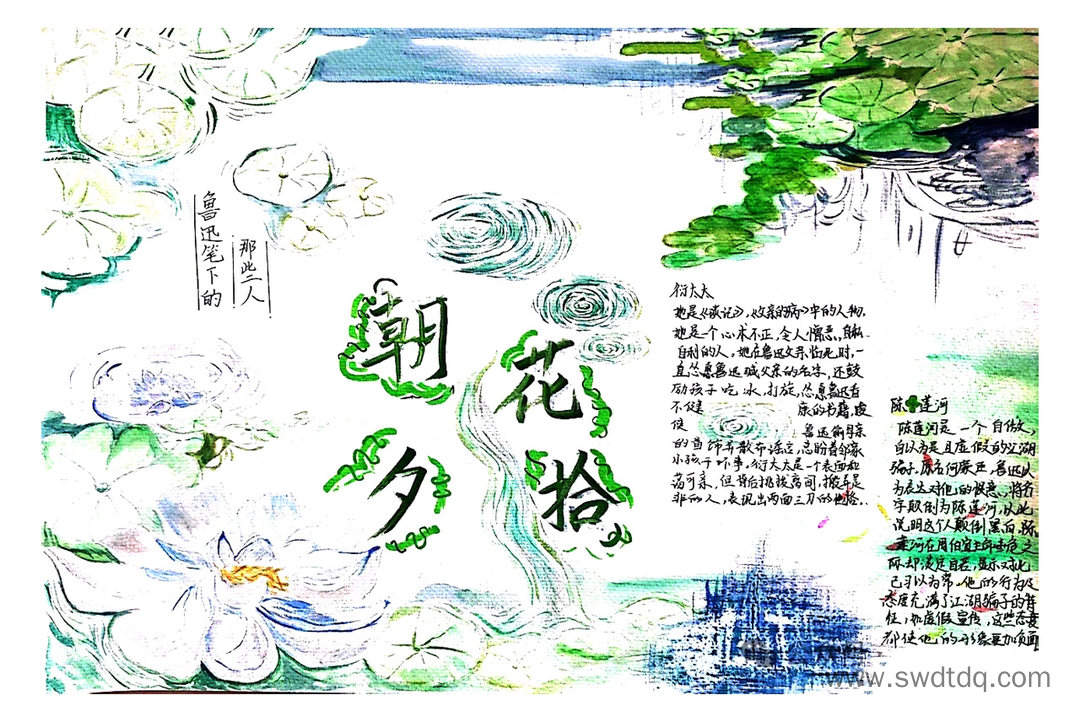 鲁迅笔下的
那些人
朝花
夕拾
衍太太
她是《琐记》,《父亲的病》中的人物,
她是一个心术不正,令人憎恶,自私
自利的人,她在鲁迅父亲临死时,一
直怂恿鲁迅喊父亲的名字,还鼓
励孩子吃冰,打旋,怂恿鲁迅看
不健康的书籍,唆
使鲁迅偷母亲
的首饰并散布谣言,总盼着邻家
小孩子干坏事,衍太太是一个表面和
蔼可亲,但背后挑拨离间,搬弄是
非的人,表现出两面三刀的
陈莲河
陈莲河是一个自傲,
自以为是且虚假的江湖
骗子,原名何廉臣,鲁迅以
为表达对他的恨意,将名
字取倒为陈莲河,以此
说明这个人颠倒黑白,陈
莲河在周伯宜生命垂危之
际却淡定自若,显示对此
已习以为常,他的行为及
态度充满了江湖骗子的特
征,如虚假宣传,这些态度
都使他的形象更加负面
www.swdtdq.com